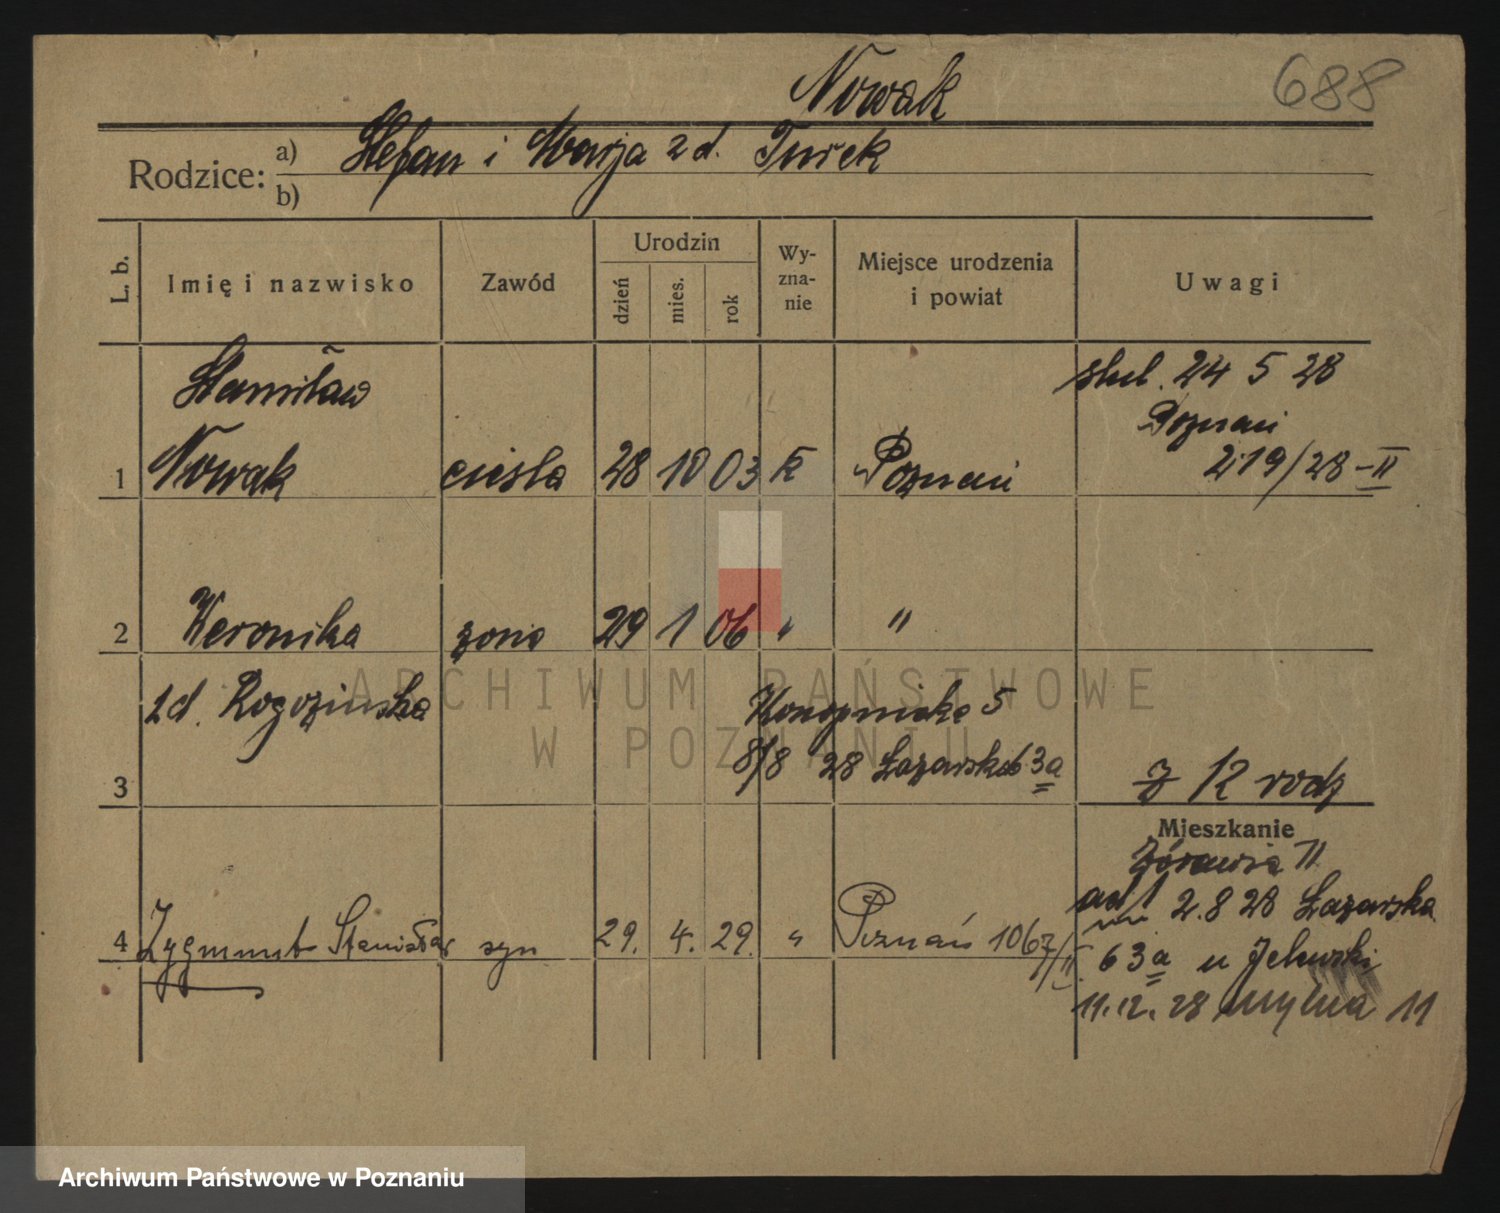 Nowak
688
Rodzice:
a) Stefan i Marja z d. Turek
b)
L. b.
Imię i nazwisko
Zawód
Urodzin
dzień
mies.
rok
Wy-
zna-
nie
Miejsce urodzenia
i powiat
Uwagi
Stanisław
Nowak
1
cieśla
28 10 03
k
Poznań
ślub. 24 5 28
Poznań
219/28-II
2
Weronika
żona
29 1 06
"
"
z d. Rogozińska
3
Konopnicka 5
8/8 28 Łazarska 63a
Z 12 rodz
Mieszkanie
Żórawia 11
2.8 28 Łazarska
63a u
11.12.28 Mylna 11
4
Zygmunt Stanisław
syn
29. 4. 29.
"
Poznań 1067/II
ARCHIWUM PAŃSTWOWE
W POZNANIU
Archiwum Państwowe w Poznaniu